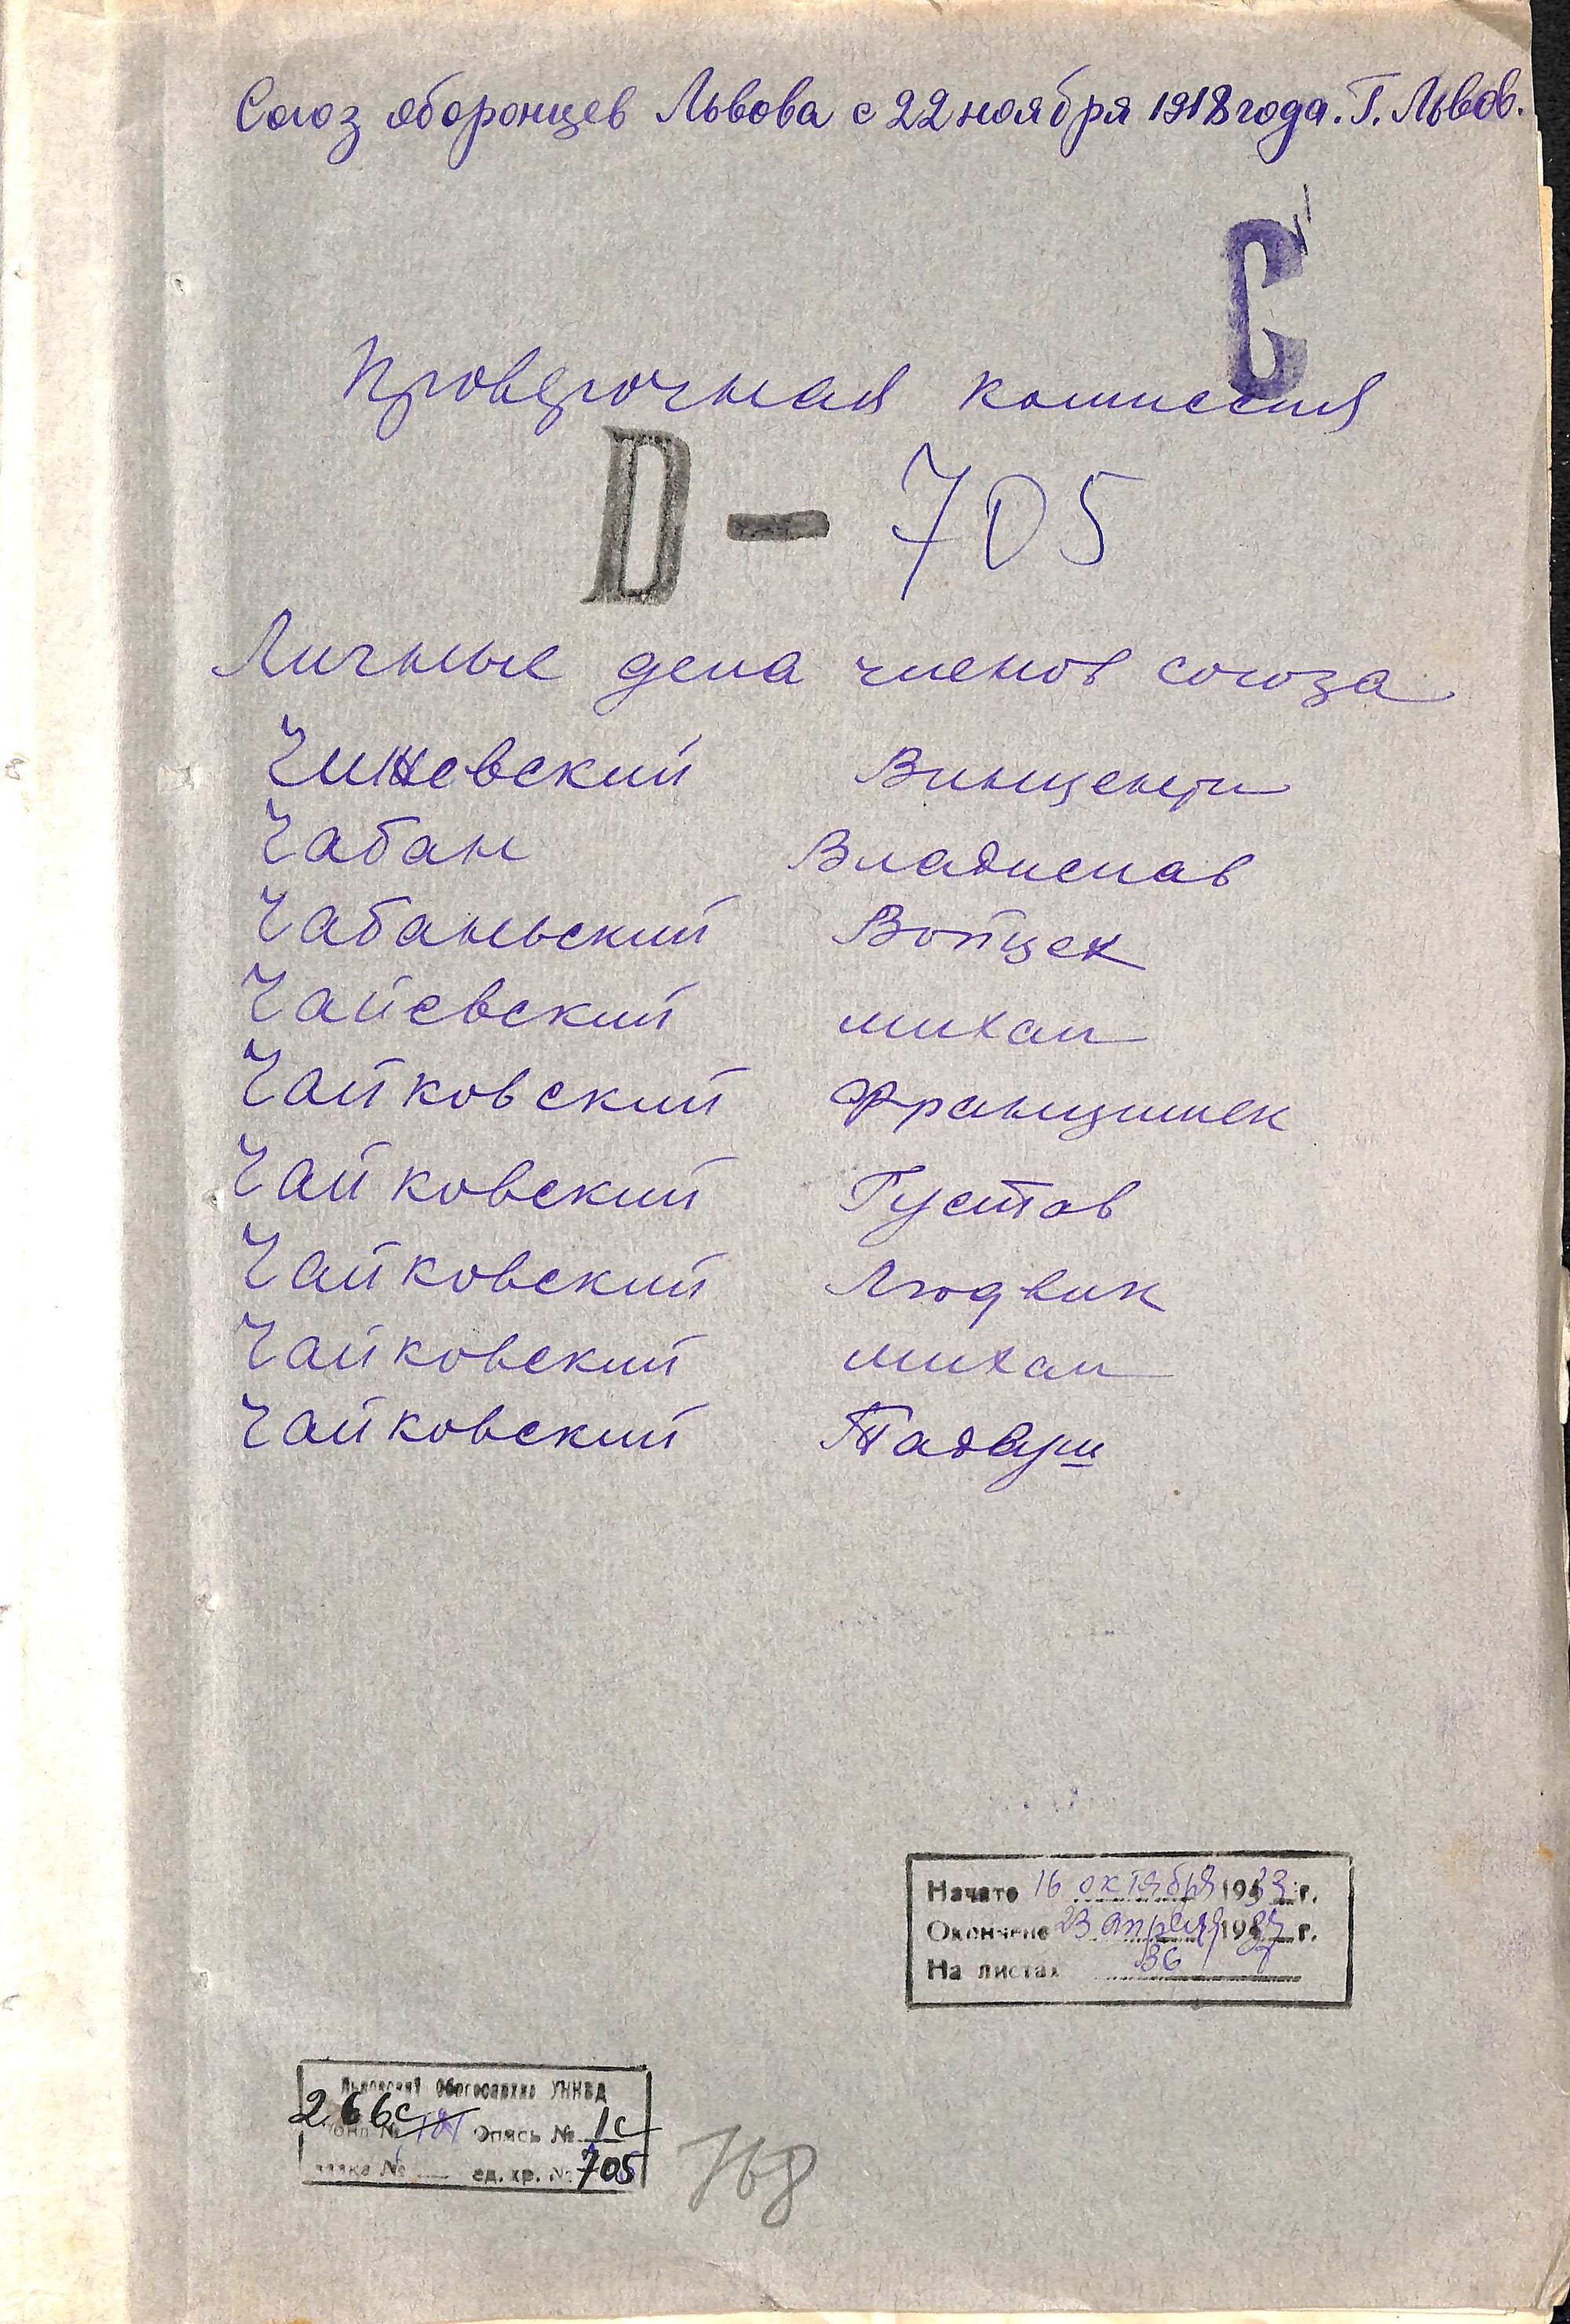 Союз оборонцев Львова с 22 ноября 1918 года. Г. Львов.
С
Проверочная комиссия
D – 705
Личные дела членов союза
Чижевский Винценти
Чабан Владислав
Чабаньский Войцех
Чайевский Михал
Чайковский Францишек
Чайковский Густав
Чайковский Людвик
Чайковский Михал
Чайковский Тадеуш
Начато 16 октября 1933 г.
Окончено 23 апреля 1937 г.
На листах 36
Львовский Облгосархив УНКВД
266с Фонд № Опись № 1с
ед. хр. № 705
768